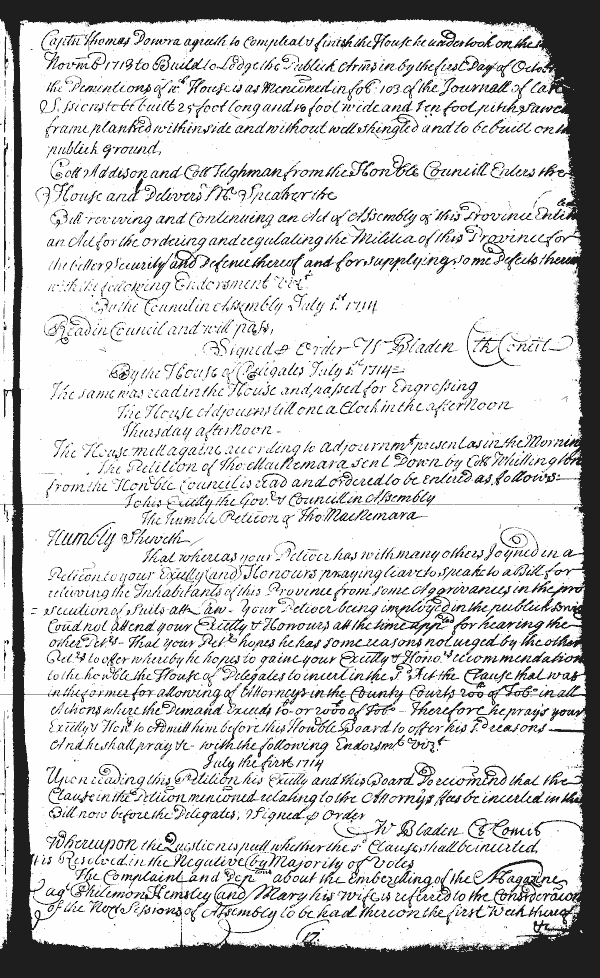 Captn Thomas Donora agreeth to Compleat & finish the House he undertook on the
Novmb 1713 to Build to Lodge the Publick Arms in by the first Day of Octob
the Dementions of wch House is as Mencioned in fol: 103 of the Journall of Late
Sessions to be built 25 foot long and 18 foot wide and Ten foot pitch Sawed
frame planked within side and without well shingled and to be built on the
publick ground,
Coll Addison and Coll Tilghman from the Honble Councill Enters the
House and Delivers Mr Speaker the
Bill reviving and Continuing an Act of Assembly of this Province Entit
an Act for the ordering and regulating the Militia of this Province for
the better Security and Defence thereof and for supplying some Defects therein
with the following Endorsment vizt
By the Councill in Assembly July 1st 1714
Read in Council and will pass,
Signed p Order W Bladen Cl Concil
By the House of Delegates July 1st 1714
The same was read in the House and passed for Engrossing
The House Adjourns till one a Clock in the afternoon
Thursday afternoon
The House mett againe according to adjournmt present as in the Morning
The Petition of Tho: Macnemara sent Down by Coll Whittington
from the Honble Council is read and ordered to be Entered as follows
To his Exctly the Govr & Councill in Assembly
The humble Peticon of Tho Macnemara
Humbly Sheweth
That whereas your Peticoer has with many others Joyned in a
Peticon to your Exctly and Honours praying leave to speake to a Bill for
releiving the Inhabitants of this Province from some Aggrivances in the pro
=secution of Suits att Law - Your Peticoer being imployed in the publick
Coud not attend your Exctly & Honours att the time appd for hearing the
other Petrs - That your Petr hopes he has some reasons not urged by the other
Petrs to offer whereby he hopes to gaine your Exctly & Honors recommendation
to the honble the House of Delegates to incert in the sd Act the Clause that was
in the former for allowing of Attorneys in the County Courts 200 of Tobo in all
Actions where the Demand Exceeds or 2000 of Tobo - Therefore he prays your
Exctly & Honrs to admitt him before this Honble Board to offer his sd reasons
And he shall pray &c - with the following Endorsmt vizt
July the first 1714
Upon reading this Petition his Exctly and this Board Do recomend that the
Clause in the Peticon mencioned relating to the Attorneys fees be incerted in the
Bill now before the Delegates, Signed p Order
W Bladen Cl Concil
Whereupon the Question is putt whether the sd Clause shall be incerted
it is Resolved in the Negative by Majority of Votes
The Complaint and Depcons about the embezling of the Magazine
agt Philemon Hemsley and Mary his Wife is referred to the Consideracon
of the Next Sessions of Assembly to be had thereon the first Week thereof
17.